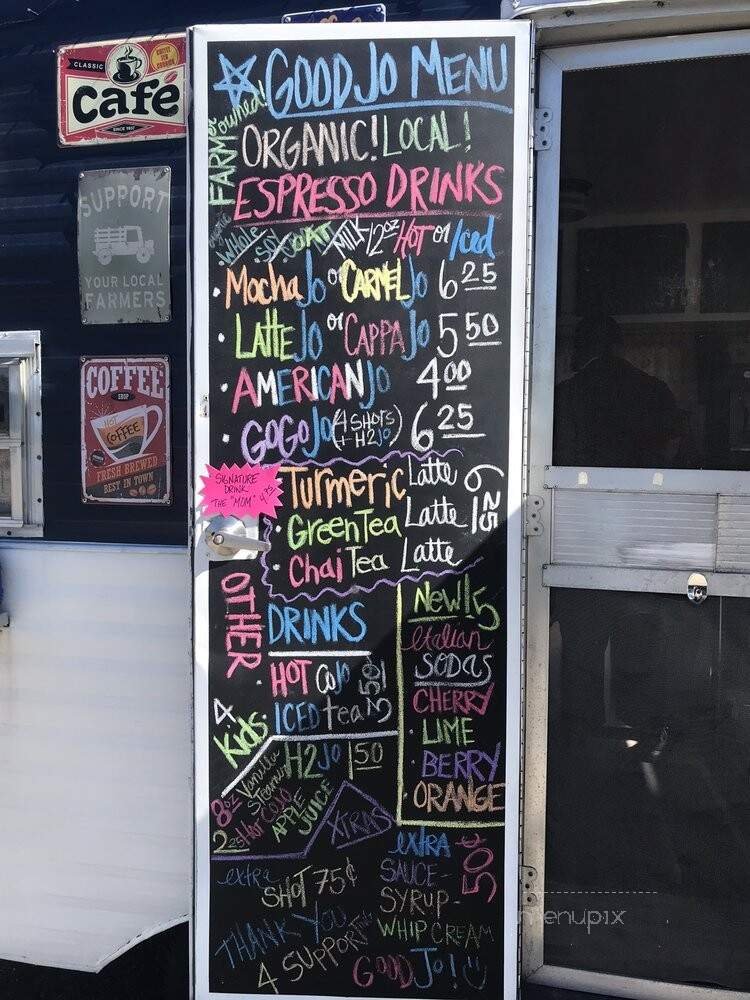 CLASSIC
Café
SINCE 1937
SUPPORT
YOUR LOCAL
FARMERS
COFFEE
SHOP
HOT
COFFEE
FRESH BREWED
BEST IN TOWN
GOODJO MENU
FARM owned!
ORGANIC! LOCAL!
ESPRESSO DRINKS
Whole Soy OAT MILK 12oz HOT or Iced
• MochaJo or CARMELJo 6 25
• LATTEJo or CAPPAJo 5 50
• AMERICANJo 4 00
• GOGOJo (4 SHOTS + H2Jo) 6 25
SIGNATURE
DRINK
THE "MOM"
• Turmeric Latte
• GreenTea Latte
• Chai Tea Latte
6 25
OTHER
DRINKS
• HOT CoJo
• ICED tea
3 50
H2Jo 1 50
4 Kids.
Vanilla Steamer
HOT CoCo
APPLE JUICE
8oz
2 25
New! 5
Italian
SODAS
• CHERRY
• LIME
• BERRY
• ORANGE
XTRAS
extra
SHOT 75¢
extra 50¢
SAUCE-
SYRUP-
WHIP CREAM
THANK YOU
4 SUPPORT
GOODJo!
menupix